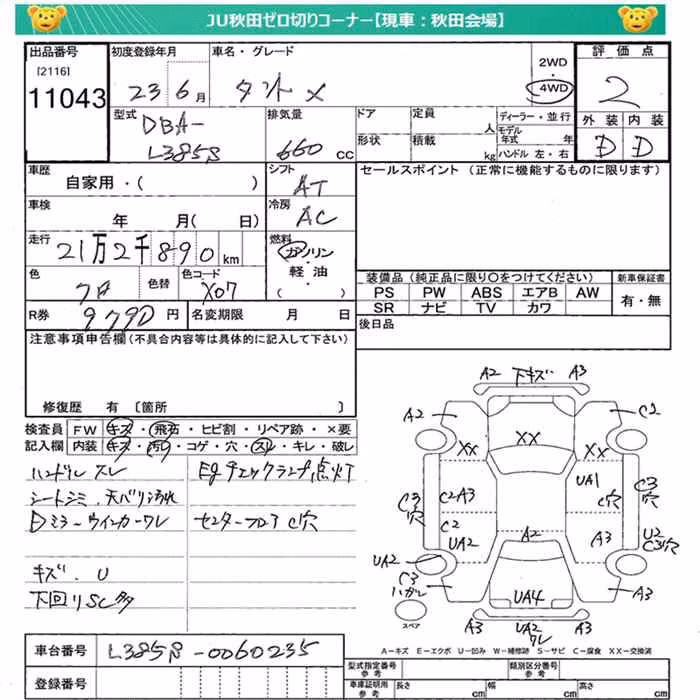 JU秋田ゼロ切りコーナー【現車:秋田会場】
出品番号
[2116]
11043
初度登録年月
23 6月
車名・グレード
タント X
2WD
・
4WD
評価点
2
外装 内装
D D
型式
DBA-
L385S
排気量
660 cc
ドア
形状
定員
人
積載
kg
ディーラー・並行
モデル年式 年
ハンドル 左・右
車歴
自家用・( )
シフト
AT
車検
年 月( 日)
冷房
AC
走行
21万2千890km
燃料
ガソリン
軽油
( )
色
クロ
色替
色コード
X07
R券
9790円
名変期限 月 日
セールスポイント(正常に機能するものに限ります)
装備品(純正品に限り○をつけてください)
PS PW ABS エアB AW
SR ナビ TV カワ
新車保証書
有・無
後日品
注意事項申告欄(不具合内容等は具体的に記入して下さい)
修復歴 有 [箇所 ]
検査員 FW キズ・飛石・ヒビ割・リペア跡・×要
記入欄 内装 キズ・汚れ・コゲ・穴・スレ・キレ・破レ
ハンドル スレ
シートシミ、天バリ汚れ
Dミラーウインカーワレ
キズ、U
下回りSC多
Egチェックランプ点灯
センターフロア C穴
A2 下キズ A3
A2 C2
XX XX XX
UA1
C穴
C3穴 C2A3 C3穴
C2 UA2 A2 A3 U2 C3穴
UA2
C3
ハガレ
UA4 A3
スペア
A3 UA2 ワレ A3
A-キズ E-エクボ U-凹み W-補修跡 S-サビ C-腐食 XX-交換済
車台番号 L385S-0060235
登録番号
型式指定番号 参考
類別区分番号 参考
車庫証明用 参考 長さ cm 幅 cm 高さ cm